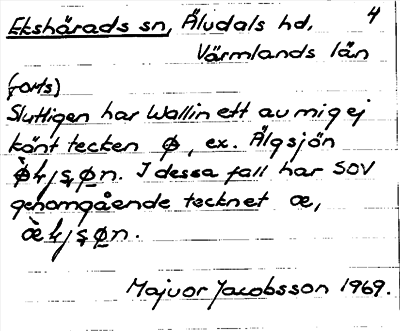 Ekshärads sn, Äludals hd, 4
Värmlands län
(forts)
Slutligen har Wallin ett av mig ej
känt tecken ø, ex. Älgsjön
jøn. I dessa fall har SOV
genomgående tecknet œ,
Majvor Jacobsson 1969.